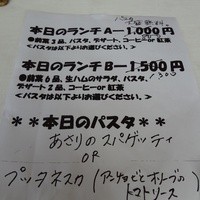 本日のランチA―1,000円
●前菜2品、パスタ、デザート、コーヒーor紅茶
<パスタは以下よりお選びください。>
本日のランチB―1,500円
1300
●前菜6品、生ハムのサラダ、パスタ、
デザート2品、コーヒーor紅茶
<パスタは以下よりお選びください。>
**本日のパスタ**
あさりのスパゲッティ
OR
プッタネスカ(アンチョビとオリーブの
トマトソース